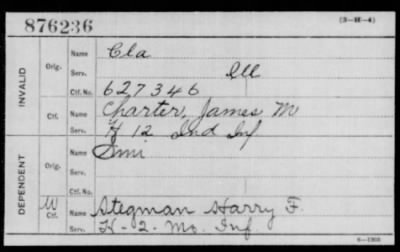 876236
(3-H-4)
INVALID
Orig.
Name Cla
Serv. Ill
Ctf. No. 627346
Ctf.
Name Charter, James M
Serv. H 12 Ind Inf
DEPENDENT
Orig.
Name
Serv.
Ctf. No.
W Ctf.
Name Stegman Harry F.
Serv. K-2-Mo. Inf.